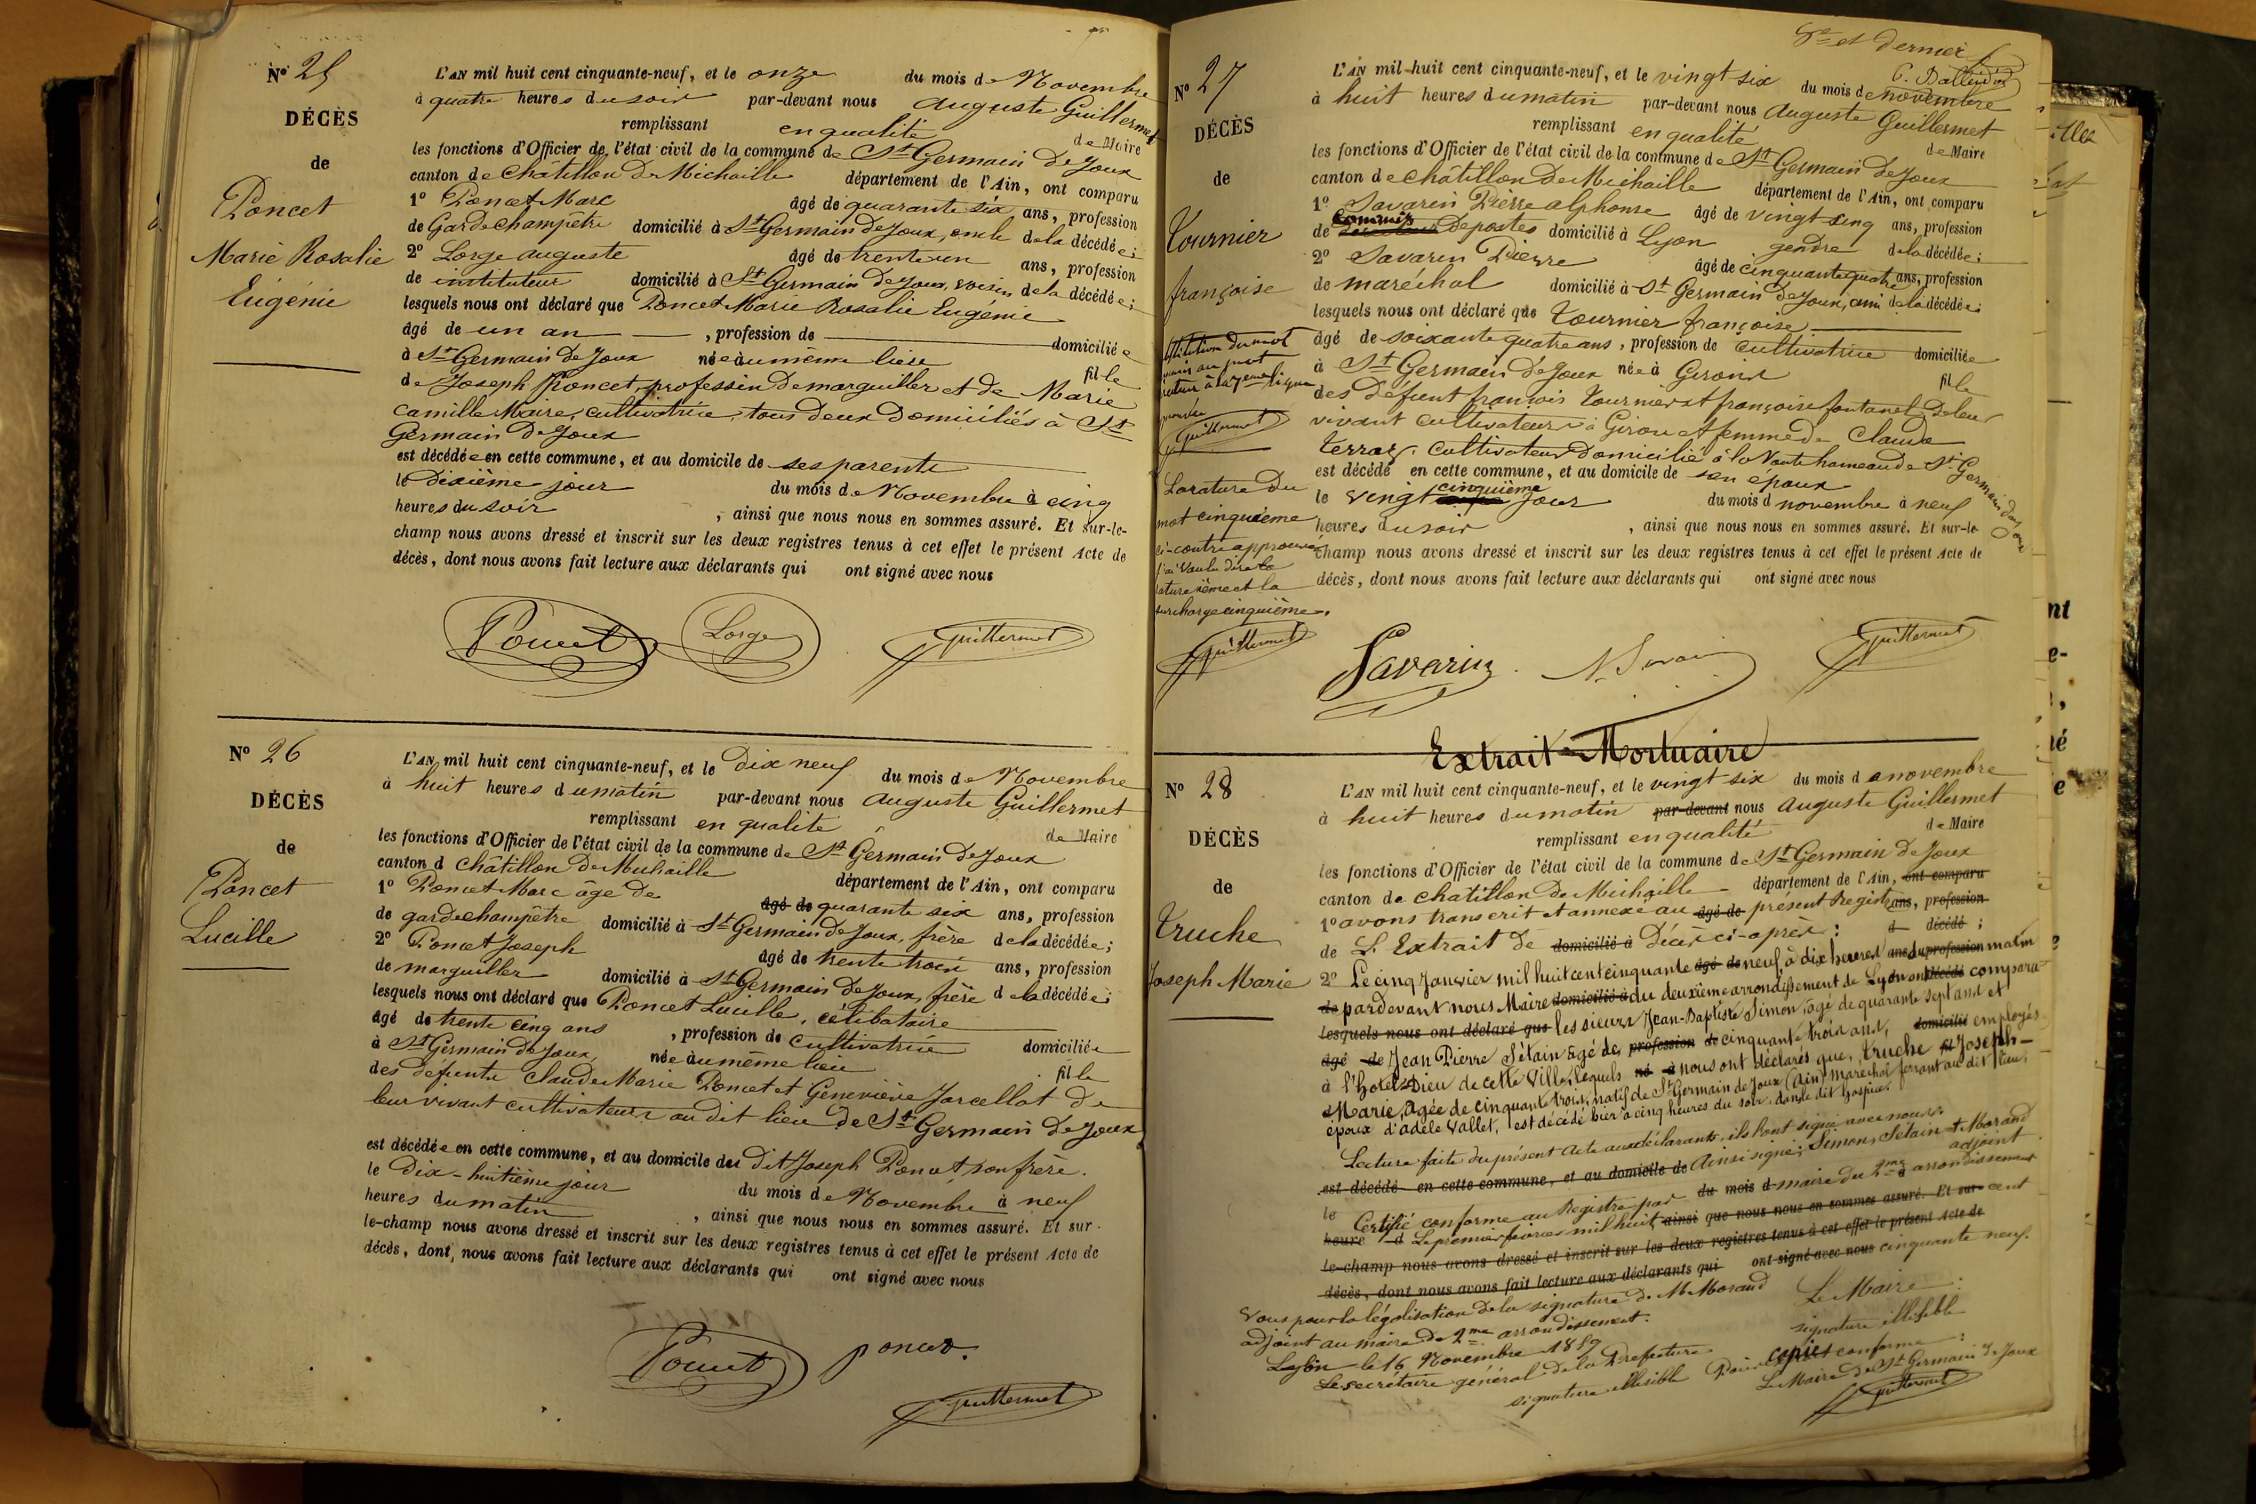 Nº 25
DÉCÈS
de
Poncet
Marie Rosalie
Eugénie
L'AN mil huit cent cinquante-neuf, et le onze du mois de Novembre
à quatre heures du soir par-devant nous Auguste Guillermet
remplissant en qualité de Maire
les fonctions d'Officier de l'état civil de la commune de St Germain De Joux
canton de Châtillon De Michaille département de l'Ain, ont comparu
1º Poncet Marc âgé de quarante six ans, profession
de Garde champêtre domicilié à St Germain De Joux, oncle de la décédée;
2º Lorge auguste âgé de trente un ans, profession
de instituteur domicilié à St Germain De Joux, voisin de la décédée;
lesquels nous ont déclaré que Poncet Marie Rosalie Eugénie
âgé de un an , profession de domiciliée
à St Germain De Joux née au même lieu fille
de Joseph Poncet, profession De marguiller et de Marie
Camille Maire, cultivatrice, tous deux Domiciliés à St
Germain De Joux
est décédée en cette commune, et au domicile de ses parents
le Dixième jour du mois de Novembre à cinq
heures du soir , ainsi que nous nous en sommes assuré. Et sur-le-
champ nous avons dressé et inscrit sur les deux registres tenus à cet effet le présent Acte de
décès, dont nous avons fait lecture aux déclarants qui ont signé avec nous
Poncet Lorge Guillermet
Nº 26
DÉCÈS
de
Poncet
Lucille
L'AN mil huit cent cinquante-neuf, et le dix neuf du mois de Novembre
à huit heures du matin par-devant nous Auguste Guillermet
remplissant en qualité de Maire
les fonctions d'Officier de l'état civil de la commune de St Germain De Joux
canton d Châtillon De Michaille département de l'Ain, ont comparu
1º Poncet Marc âge de âgé de quarante six ans, profession
de garde champêtre domicilié à St Germain De Joux, frère de la décédée;
2º Poncet Joseph âgé de trente trois ans, profession
de marguiller domicilié à St Germain De Joux, frère de la décédée;
lesquels nous ont déclaré que Poncet Lucille, célibataire
âgé de trente cinq ans , profession de cultivatrice domiciliée
à St Germain De Joux, née au même lieu fille
des défunts Claude Marie Poncet et Geneviève Jarcellat De
leur vivant cultivateurs au dit lieu de St Germain De Joux
est décédée en cette commune, et au domicile des dit Joseph Poncet, son frère.
le Dix-huitième jour du mois de Novembre à neuf
heures du matin , ainsi que nous nous en sommes assuré. Et sur
le-champ nous avons dressé et inscrit sur les deux registres tenus à cet effet le présent Acte de
décès, dont nous avons fait lecture aux déclarants qui ont signé avec nous
Poncet Poncet
Guillermet
8e et dernier
Nº 27
DÉCÈS
de
Tournier
françoise
L'AN mil huit cent cinquante-neuf, et le vingt six du mois de novembre
à huit heures du matin par-devant nous Auguste Guillermet
remplissant en qualité de Maire
les fonctions d'Officier de l'état civil de la commune de St Germain de Joux
canton de châtillon De Michaille département de l'Ain, ont comparu
1º Savarin Pierre alphonse âgé de vingt cinq ans, profession
de commis De postes domicilié à Lyon gendre de la décédée;
2º Savarin Pierre âgé de cinquante quatre ans, profession
de maréchal domicilié à St Germain De Joux, ami de la décédée;
lesquels nous ont déclaré que Tournier françoise
âgé de soixante quatre ans, profession de cultivatrice domiciliée
à St Germain de Joux née à Giron fille
des Défunt françois Tournier et françoise fontanel, De leur
vivant cultivateurs à Giron et femme de Claude
Terraz, cultivateur Domicilié à la Voute hameau de St Germain de Joux
est décédé en cette commune, et au domicile de son époux
le vingt cinquième jour du mois d novembre à neuf
heures du soir , ainsi que nous nous en sommes assuré. Et sur-le-
champ nous avons dressé et inscrit sur les deux registres tenus à cet effet le présent Acte de
décès, dont nous avons fait lecture aux déclarants qui ont signé avec nous
Guillermet
La rature Du
mot cinquième
ci-contre approuvée
j'ai voulu dire la
rature ième et la
surcharge cinquième.
Guillermet Savarin Guillermet
Extrait Mortuaire
Nº 28
DÉCÈS
de
Truche
Joseph Marie
L'AN mil huit cent cinquante-neuf, et le vingt six du mois d e novembre
à huit heures du matin par-devant nous Auguste Guillermet
remplissant en qualité de Maire
les fonctions d'Officier de l'état civil de la commune de St Germain De Joux
canton de chatillon De Michaille département de l'Ain, ont comparu
1º avons transcrit et annexé au âgé de présent Registre ans, profession
de L'Extrait de domicilié à Décès ci-après: d décédé ;
2º Le cinq Janvier mil huit cent cinquante âgé de neuf, à dix heures ans du profession matin
de pardevant nous Maire domicilié à du deuxième arrondissement de Lyon ont décédé comparu
lesquels nous ont déclaré que les sieurs Jean-Baptiste Simon, âgé de quarante sept ans et
âgé de Jean Pierre Sétain âgé de profession de cinquante trois ans, domicilié employés
à l'hotel-Dieu de cette Ville, lesquels né à nous ont déclarés que, truche fil Joseph-
Marie, âgée de cinquante trois, natif de St Germain de Joux (Ain) maréchal ferrant au dit lieu,
époux d'adèle Vallet, est décédé hier à cinq heures du soir, dans le dit hospice.
Lecture faite du présent Acte aux déclarants, ils l'ont signé avec nous.
est décédé en cette commune, et au domicile de Ainsi signé; Simon, Sétain et Morand adjoint
le Certifié conforme au Registre par du mois d maire du 2me arrondissement
heure d Le premier février mil huit ainsi que nous nous en sommes assuré. Et sur cent
le-champ nous avons dressé et inscrit sur les deux registres tenus à cet effet le présent Acte de
décès, dont nous avons fait lecture aux déclarants qui ont signé avec nous cinquante neuf.
Vous pour la légalisation de la signature de M Morand Le Maire:
adjoint au maire De 2me arrondissement. signature illisible
Lyon le 16 Novembre 1859 Pour copie conforme:
Le secrétaire général de la Préfecture Le Maire de St Germain de Joux
signature illisible Guillermet